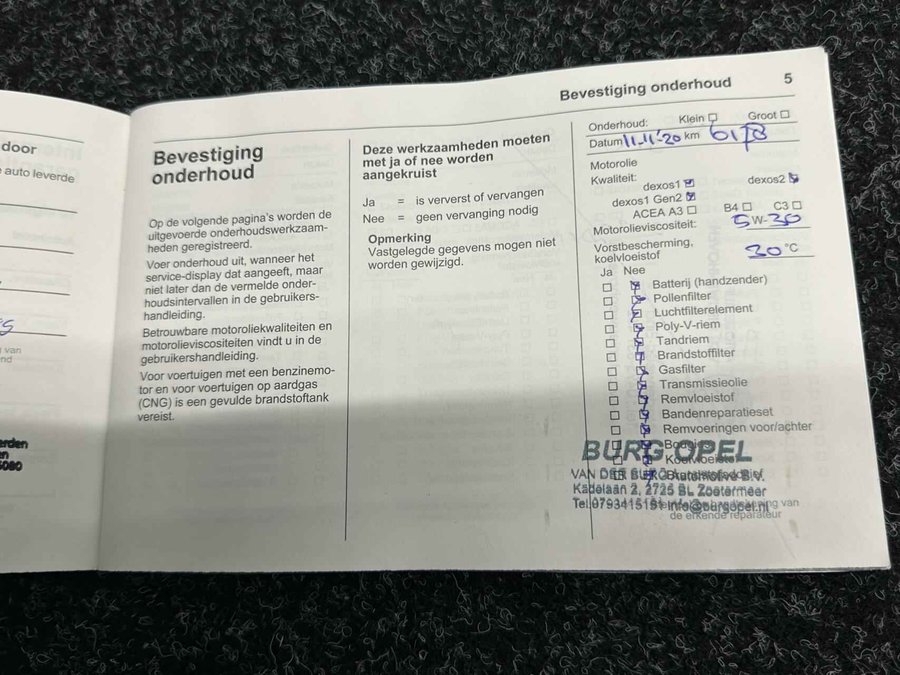 door
auto leverde
van
nd
erden
en
5080
Bevestiging onderhoud 5
Bevestiging
onderhoud
Op de volgende pagina's worden de
uitgevoerde onderhoudswerkzaam-
heden geregistreerd.
Voer onderhoud uit, wanneer het
service-display dat aangeeft, maar
niet later dan de vermelde onder-
houdsintervallen in de gebruikers-
handleiding.
Betrouwbare motoroliekwaliteiten en
motorolieviscositeiten vindt u in de
gebruikershandleiding.
Voor voertuigen met een benzinemo-
tor en voor voertuigen op aardgas
(CNG) is een gevulde brandstoftank
vereist.
Deze werkzaamheden moeten
met ja of nee worden
aangekruist
Ja = is ververst of vervangen
Nee = geen vervanging nodig
Opmerking
Vastgelegde gegevens mogen niet
worden gewijzigd.
Onderhoud: Klein Groot
Datum 11-11-'20 km
Motorolie
Kwaliteit:
dexos1 dexos2
dexos1 Gen2
ACEA A3 B4 C3
Motorolieviscositeit: 5W-30
Vorstbescherming,
koelvloeistof 30 °C
Ja Nee
Batterij (handzender)
Pollenfilter
Luchtfilterelement
Poly-V-riem
Tandriem
Brandstoffilter
Gasfilter
Transmissieolie
Remvloeistof
Bandenreparatieset
Remvoeringen voor/achter
Bougies
Koelvloeistof
BURG OPEL
VAN DER BURG Automotive B.V.
Kadelaan 2, 2725 BL Zoetermeer
Tel.0793415151 info@burgopel.nl
van
de erkende reparateur